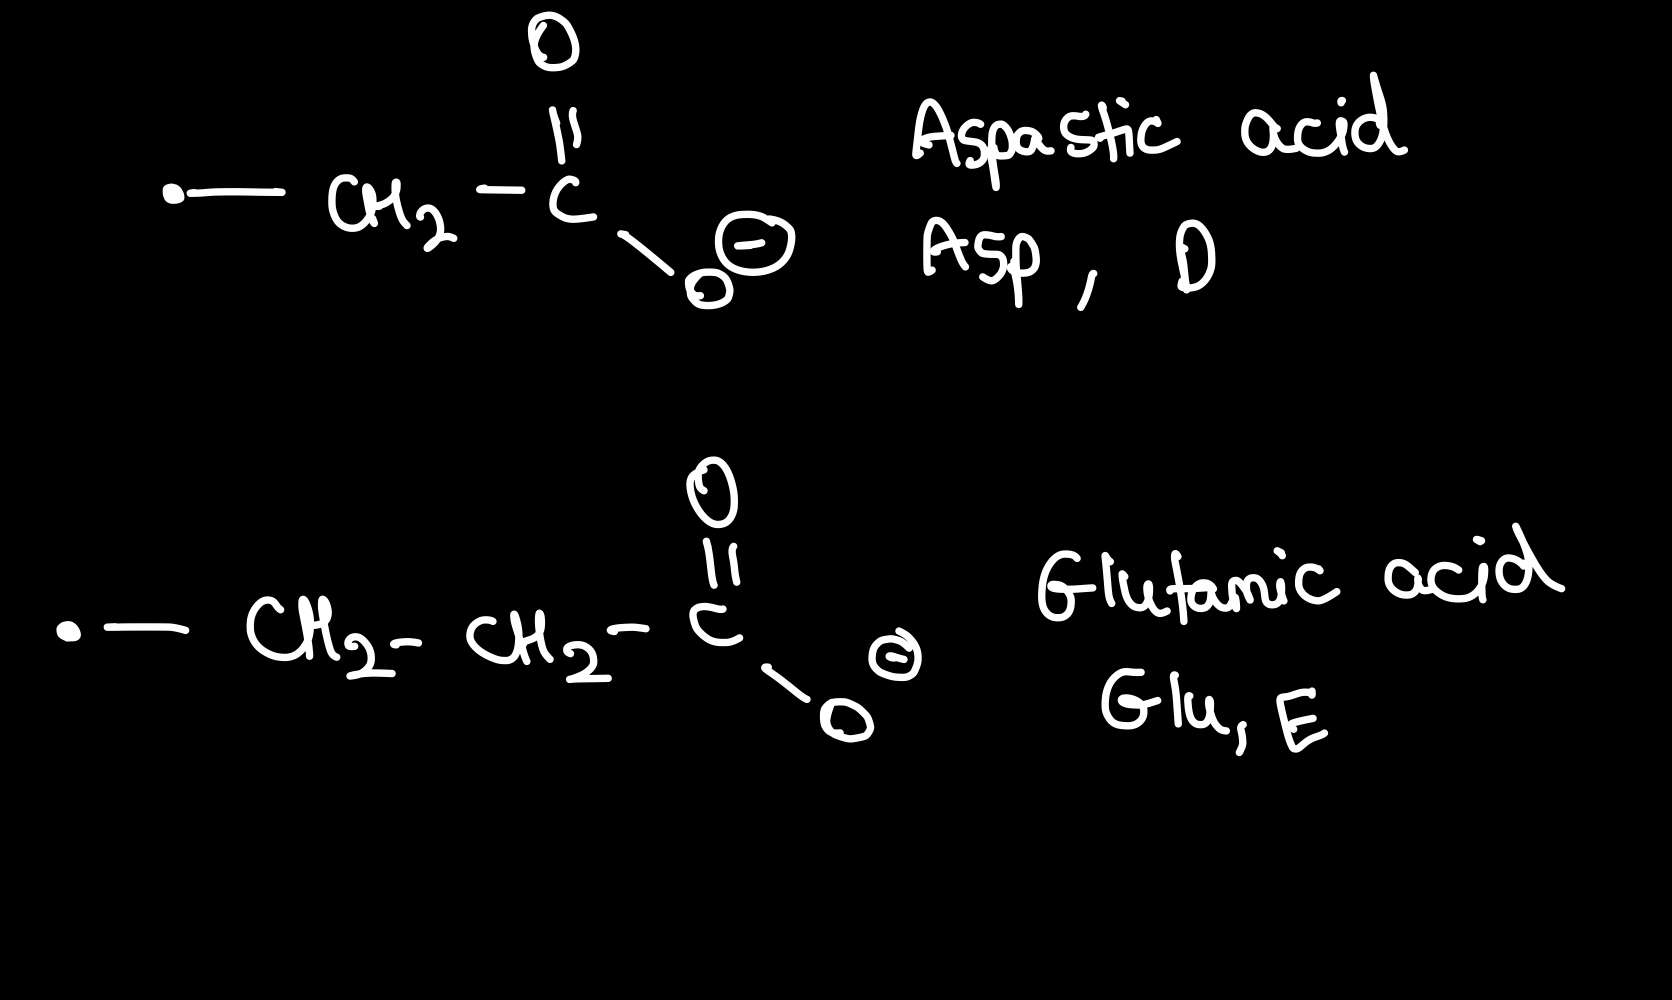 O
CH2 - C
O ⊖
Aspastic acid
Asp, D
O
CH2 - CH2 - C
O ⊖
Glutamic acid
Glu, E